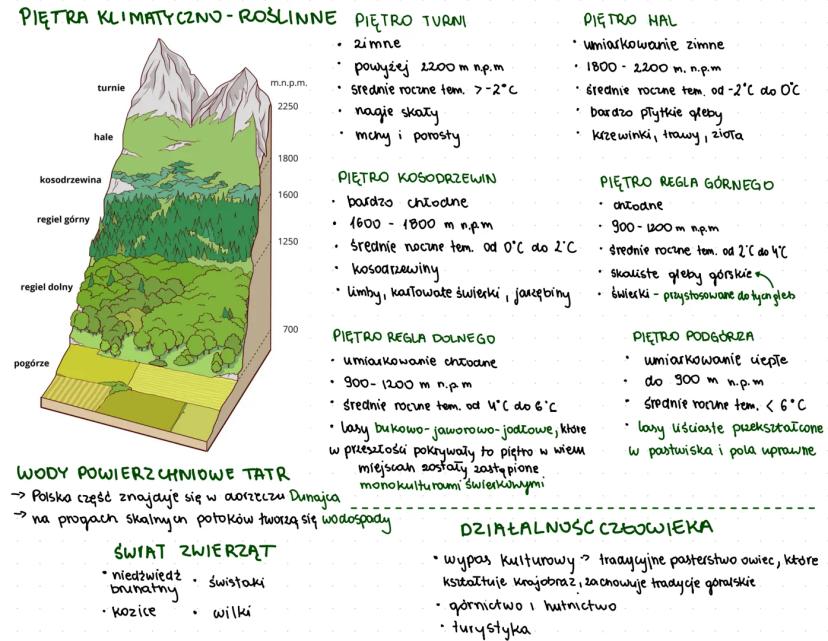 PIĘTRA KLIMATYCZNO-ROŚLINNE
turnie
hale
kosodrzewina
regiel górny
regiel dolny
pogórze
m.n.p.m.
2250
1800
1600
1250
700
PIĘTRO TURNI
• zimne
• powyżej 2200 m n.p.m
• średnie roczne tem. > -2°C
• nagie skały
• mchy i porosty
PIĘTRO HAL
• umiarkowanie zimne
• 1800 - 2200 m. n.p.m
• średnie roczne tem. od -2°C do 0°C
• bardzo płytkie gleby
• krzewinki, trawy, zioła
PIĘTRO KOSODRZEWIN
• bardzo chłodne
• 1600 - 1800 m n.p.m
• średnie roczne tem. od 0°C do 2°C
• kosodrzewiny
• limby, karłowate świerki, jarzębiny
PIĘTRO REGLA GÓRNEGO
• chłodne
• 900-1200 m n.p.m
• średnie roczne tem. od 2°C do 4°C
• skaliste gleby górskie
• świerki - przystosowane do tych gleb
PIĘTRO REGLA DOLNEGO
• umiarkowanie chłodne
• 900-1200 m n.p.m
• średnie roczne tem. od 4°C do 6°C
• lasy bukowo-jaworowo-jodłowe, które
w przeszłości pokrywały to piętro w wielu
miejscah zostały zastąpione
monokulturami świerkowymi
PIĘTRO PODGÓRZA
• umiarkowanie ciepłe
• do 900 m n.p.m
• średnie roczne tem. < 6°C
• lasy liściaste przekształcone
w pastwiska i pola uprawne
WODY POWIERZCHNIOWE TATR
→ Polska część znajduje się w dorzeczu Dunajca
→ na progach skalnych potoków tworzą się wodospady
ŚWIAT ZWIERZĄT
• niedźwiedź
brunatny
• kozice
• świstaki
• wilki
DZIAŁALNOŚĆ CZŁOWIEKA
• wypas kulturowy → tradycyjne pasterstwo owiec, które
kształtuje krajobraz, zachowuje tradycje góralskie
• górnictwo i hutnictwo
• turystyka